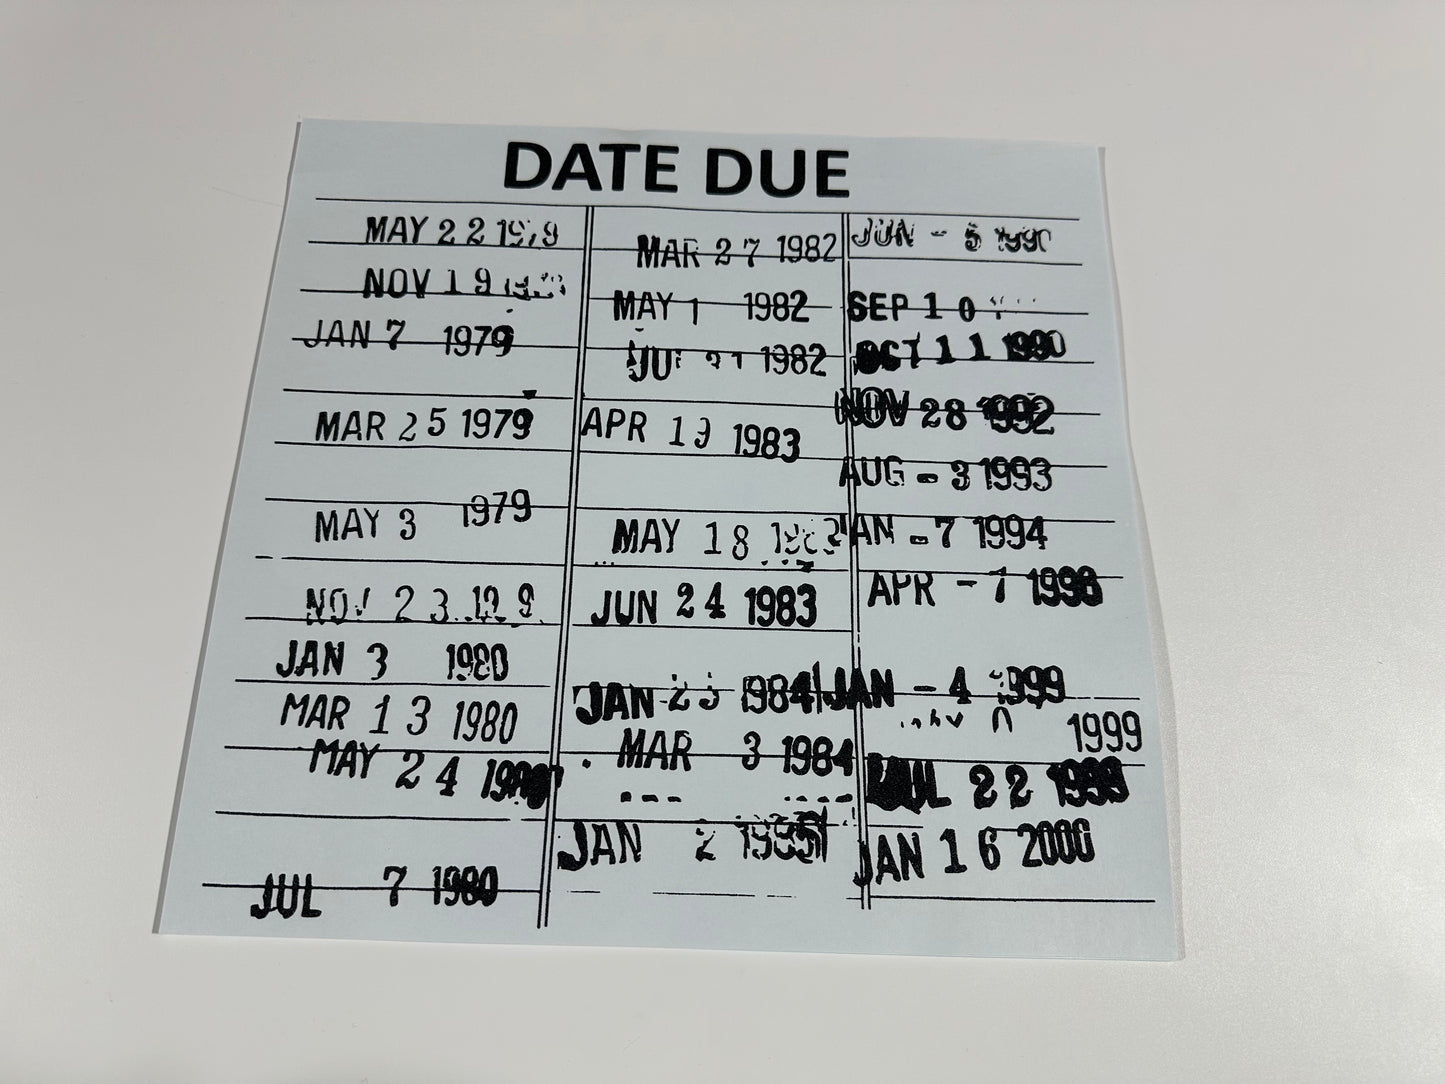 DATE DUE
MAY 22 1979
NOV 19
JAN 7 1979
MAR 25 1979
MAY 3 1979
NOV 23
JAN 3 1980
MAR 13 1980
MAY 24
JUL 7 1980
MAR 27 1982
MAY 1 1982
1982
APR 1983
MAY 18
JUN 24 1983
JAN 1984
MAR 3 1984
JAN 2 1985
JUN - 5 1990
SEP 10
OCT 11 1990
NOV 28 1992
AUG - 3 1993
JAN - 7 1994
APR - 1998
JAN - 4 1999
1999
JUL 22 1999
JAN 16 2000